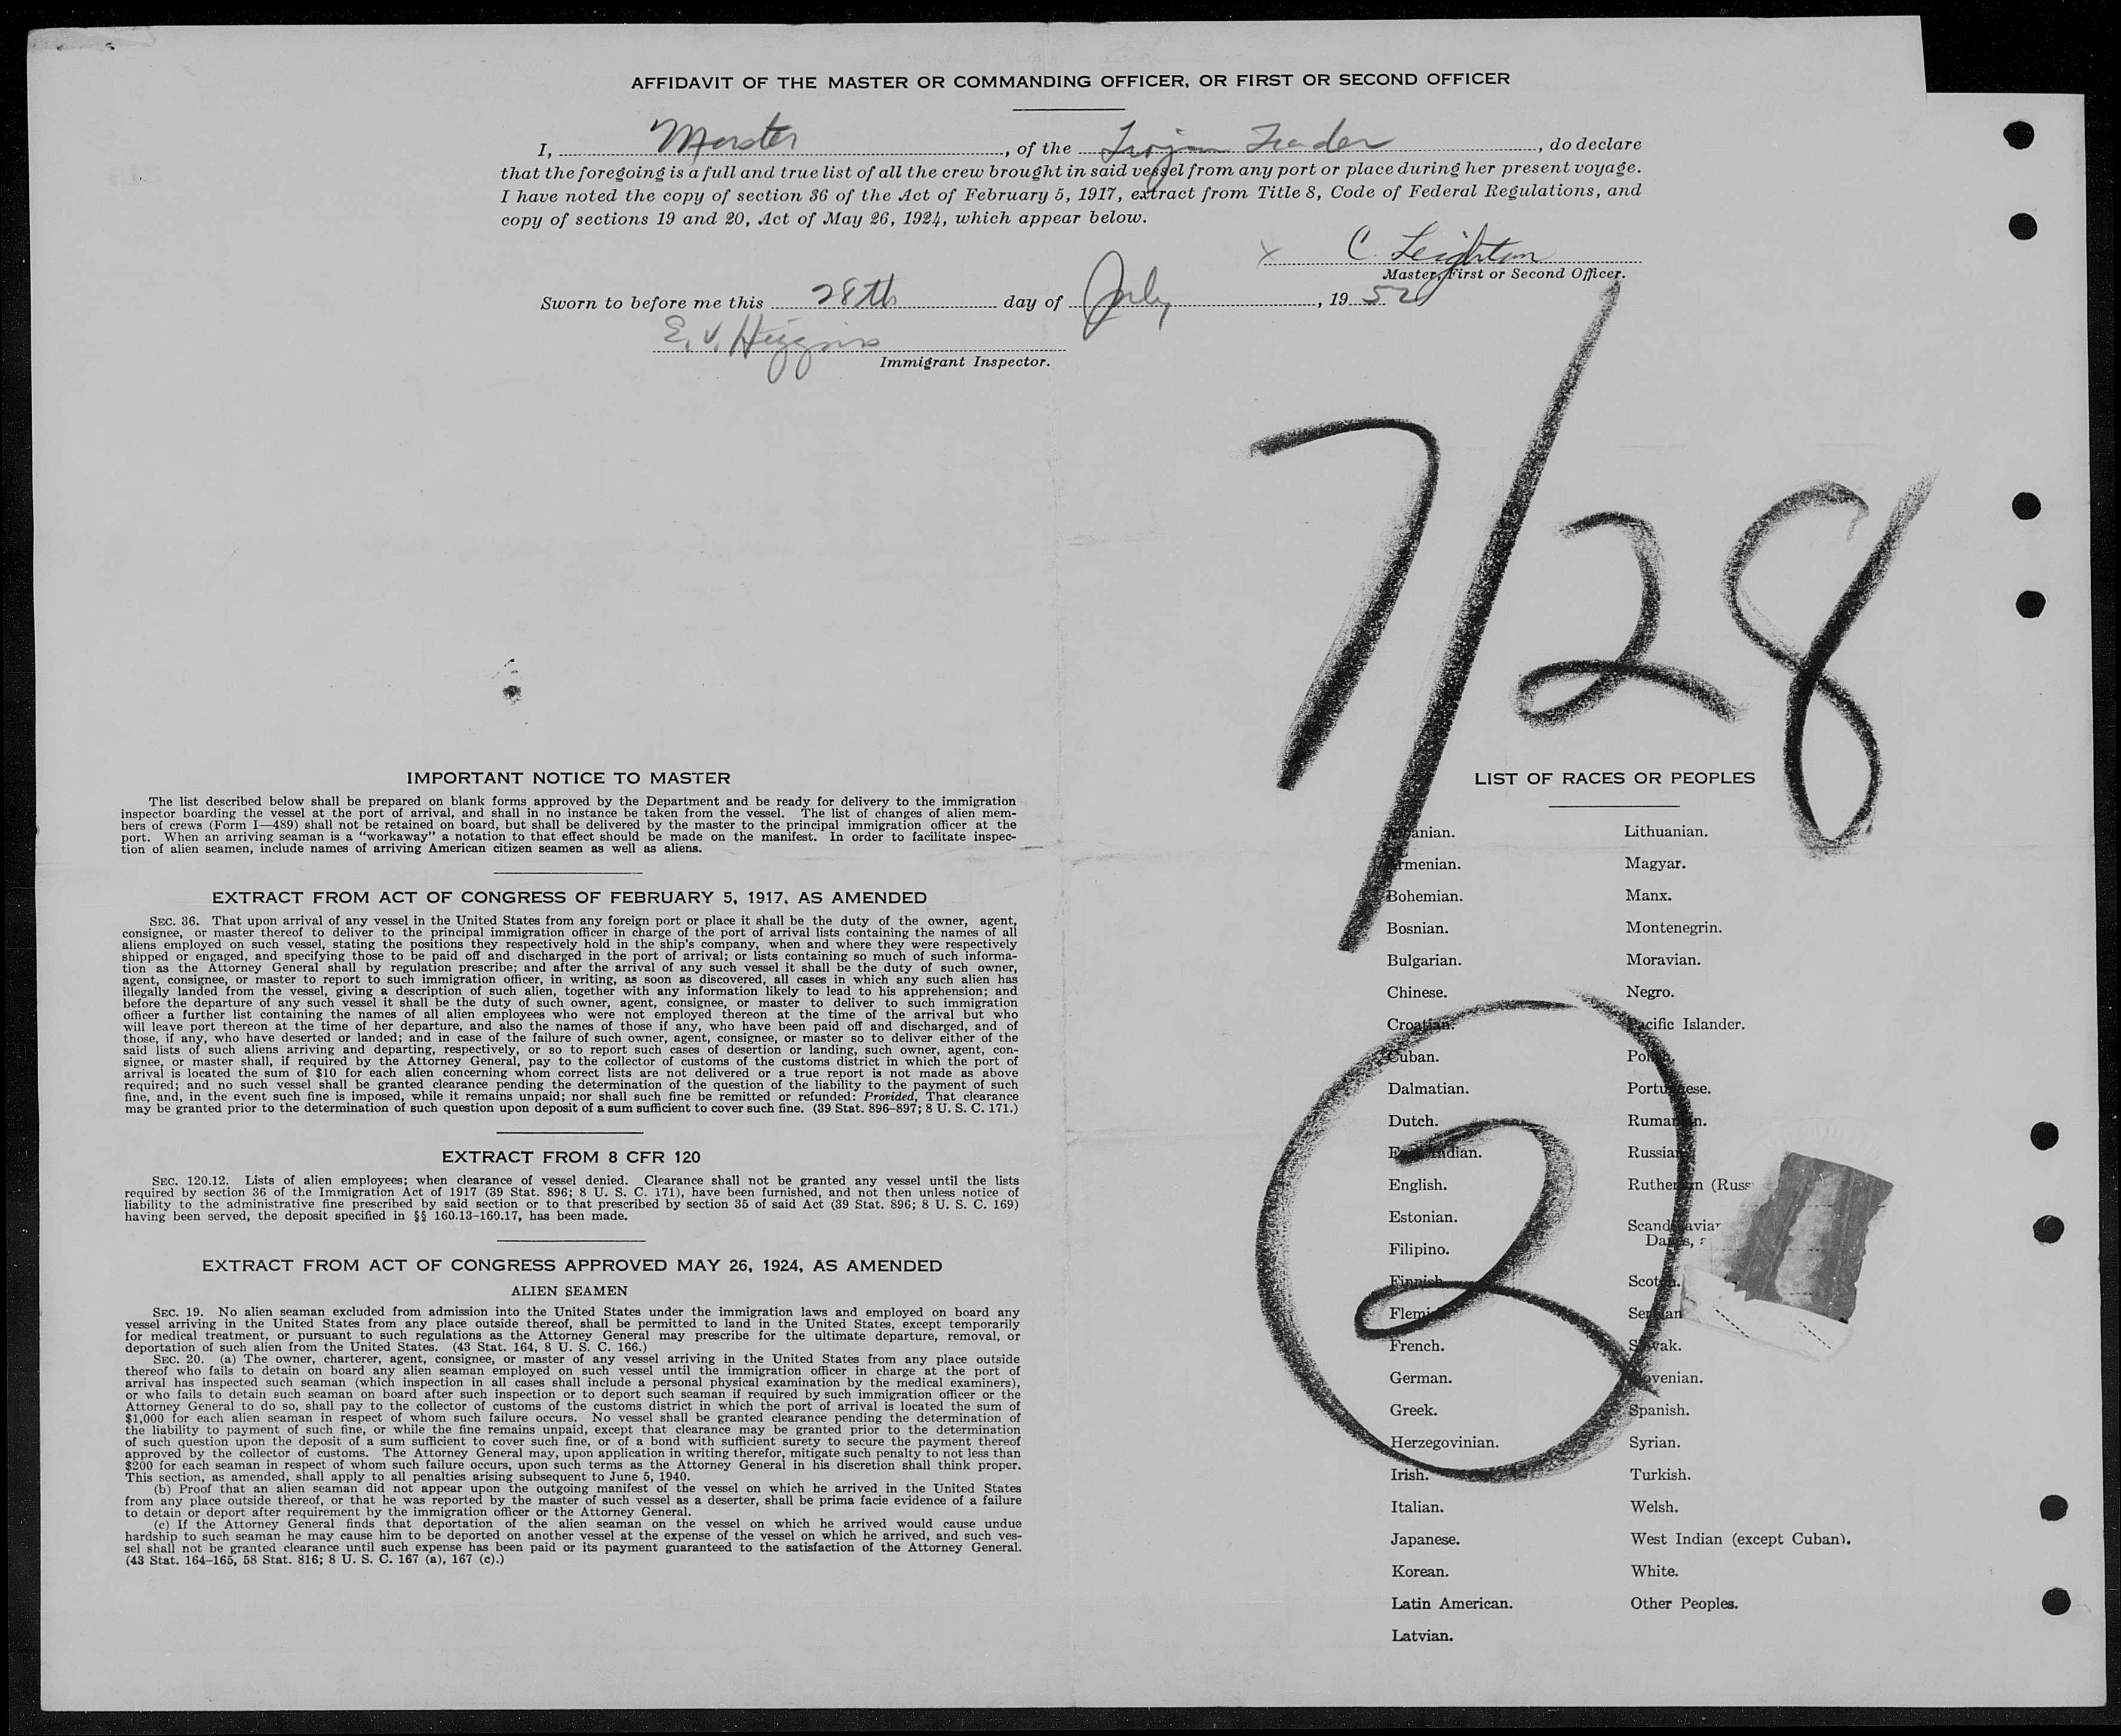 AFFIDAVIT OF THE MASTER OR COMMANDING OFFICER, OR FIRST OR SECOND OFFICER
I, Master, of the Trojan Trader, do declare
that the foregoing is a full and true list of all the crew brought in said vessel from any port or place during her present voyage.
I have noted the copy of section 36 of the Act of February 5, 1917, extract from Title 8, Code of Federal Regulations, and
copy of sections 19 and 20, Act of May 26, 1924, which appear below.
x C. Leighton
Master, First or Second Officer.
Sworn to before me this 28th day of July, 1952
E. V. Higgins
Immigrant Inspector.
7/28
2
IMPORTANT NOTICE TO MASTER
The list described below shall be prepared on blank forms approved by the Department and be ready for delivery to the immigration
inspector boarding the vessel at the port of arrival, and shall in no instance be taken from the vessel. The list of changes of alien mem-
bers of crews (Form I—489) shall not be retained on board, but shall be delivered by the master to the principal immigration officer at the
port. When an arriving seaman is a "workaway" a notation to that effect should be made on the manifest. In order to facilitate inspec-
tion of alien seamen, include names of arriving American citizen seamen as well as aliens.
EXTRACT FROM ACT OF CONGRESS OF FEBRUARY 5, 1917, AS AMENDED
SEC. 36. That upon arrival of any vessel in the United States from any foreign port or place it shall be the duty of the owner, agent,
consignee, or master thereof to deliver to the principal immigration officer in charge of the port of arrival lists containing the names of all
aliens employed on such vessel, stating the positions they respectively hold in the ship's company, when and where they were respectively
shipped or engaged, and specifying those to be paid off and discharged in the port of arrival; or lists containing so much of such informa-
tion as the Attorney General shall by regulation prescribe; and after the arrival of any such vessel it shall be the duty of such owner,
agent, consignee, or master to report to such immigration officer, in writing, as soon as discovered, all cases in which any such alien has
illegally landed from the vessel, giving a description of such alien, together with any information likely to lead to his apprehension; and
before the departure of any such vessel it shall be the duty of such owner, agent, consignee, or master to deliver to such immigration
officer a further list containing the names of all alien employees who were not employed thereon at the time of the arrival but who
will leave port thereon at the time of her departure, and also the names of those if any, who have been paid off and discharged, and of
those, if any, who have deserted or landed; and in case of the failure of such owner, agent, consignee, or master so to deliver either of the
said lists of such aliens arriving and departing, respectively, or so to report such cases of desertion or landing, such owner, agent, con-
signee, or master shall, if required by the Attorney General, pay to the collector of customs of the customs district in which the port of
arrival is located the sum of $10 for each alien concerning whom correct lists are not delivered or a true report is not made as above
required; and no such vessel shall be granted clearance pending the determination of the question of the liability to the payment of such
fine, and, in the event such fine is imposed, while it remains unpaid; nor shall such fine be remitted or refunded: Provided, That clearance
may be granted prior to the determination of such question upon deposit of a sum sufficient to cover such fine. (39 Stat. 896–897; 8 U. S. C. 171.)
EXTRACT FROM 8 CFR 120
SEC. 120.12. Lists of alien employees; when clearance of vessel denied. Clearance shall not be granted any vessel until the lists
required by section 36 of the Immigration Act of 1917 (39 Stat. 896; 8 U. S. C. 171), have been furnished, and not then unless notice of
liability to the administrative fine prescribed by said section or to that prescribed by section 35 of said Act (39 Stat. 896; 8 U. S. C. 169)
having been served, the deposit specified in §§ 160.13–160.17, has been made.
EXTRACT FROM ACT OF CONGRESS APPROVED MAY 26, 1924, AS AMENDED
ALIEN SEAMEN
SEC. 19. No alien seaman excluded from admission into the United States under the immigration laws and employed on board any
vessel arriving in the United States from any place outside thereof, shall be permitted to land in the United States, except temporarily
for medical treatment, or pursuant to such regulations as the Attorney General may prescribe for the ultimate departure, removal, or
deportation of such alien from the United States. (43 Stat. 164, 8 U. S. C. 166.)
SEC. 20. (a) The owner, charterer, agent, consignee, or master of any vessel arriving in the United States from any place outside
thereof who fails to detain on board any alien seaman employed on such vessel until the immigration officer in charge at the port of
arrival has inspected such seaman (which inspection in all cases shall include a personal physical examination by the medical examiners),
or who fails to detain such seaman on board after such inspection or to deport such seaman if required by such immigration officer or the
Attorney General to do so, shall pay to the collector of customs of the customs district in which the port of arrival is located the sum of
$1,000 for each alien seaman in respect of whom such failure occurs. No vessel shall be granted clearance pending the determination of
the liability to payment of such fine, or while the fine remains unpaid, except that clearance may be granted prior to the determination
of such question upon the deposit of a sum sufficient to cover such fine, or of a bond with sufficient surety to secure the payment thereof
approved by the collector of customs. The Attorney General may, upon application in writing therefor, mitigate such penalty to not less than
$200 for each seaman in respect of whom such failure occurs, upon such terms as the Attorney General in his discretion shall think proper.
This section, as amended, shall apply to all penalties arising subsequent to June 5, 1940.
(b) Proof that an alien seaman did not appear upon the outgoing manifest of the vessel on which he arrived in the United States
from any place outside thereof, or that he was reported by the master of such vessel as a deserter, shall be prima facie evidence of a failure
to detain or deport after requirement by the immigration officer or the Attorney General.
(c) If the Attorney General finds that deportation of the alien seaman on the vessel on which he arrived would cause undue
hardship to such seaman he may cause him to be deported on another vessel at the expense of the vessel on which he arrived, and such ves-
sel shall not be granted clearance until such expense has been paid or its payment guaranteed to the satisfaction of the Attorney General.
(43 Stat. 164–165, 58 Stat. 816; 8 U. S. C. 167 (a), 167 (c).)
LIST OF RACES OR PEOPLES
Albanian.
Armenian.
Bohemian.
Bosnian.
Bulgarian.
Chinese.
Croatian.
Cuban.
Dalmatian.
Dutch.
East Indian.
English.
Estonian.
Filipino.
Finnish.
Flemish.
French.
German.
Greek.
Herzegovinian.
Irish.
Italian.
Japanese.
Korean.
Latin American.
Latvian.
Lithuanian.
Magyar.
Manx.
Montenegrin.
Moravian.
Negro.
Pacific Islander.
Polish.
Portuguese.
Rumanian.
Russian.
Ruthenian (Russ
Scandinavian
Danes,
Scotch.
Serbian
Slovak.
Slovenian.
Spanish.
Syrian.
Turkish.
Welsh.
West Indian (except Cuban).
White.
Other Peoples.